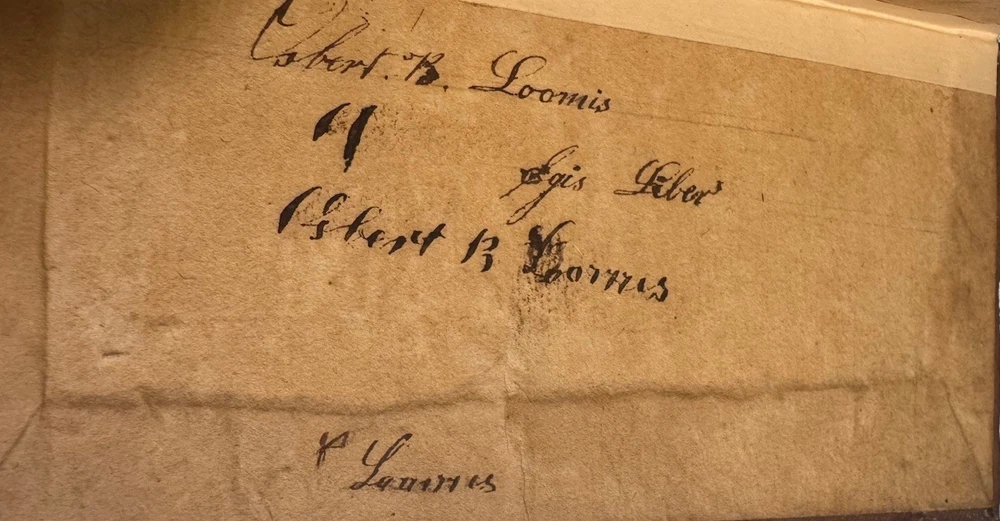 Osbert. B. Loomis
Ejis Liber
Osbert B Loomis
Loomis